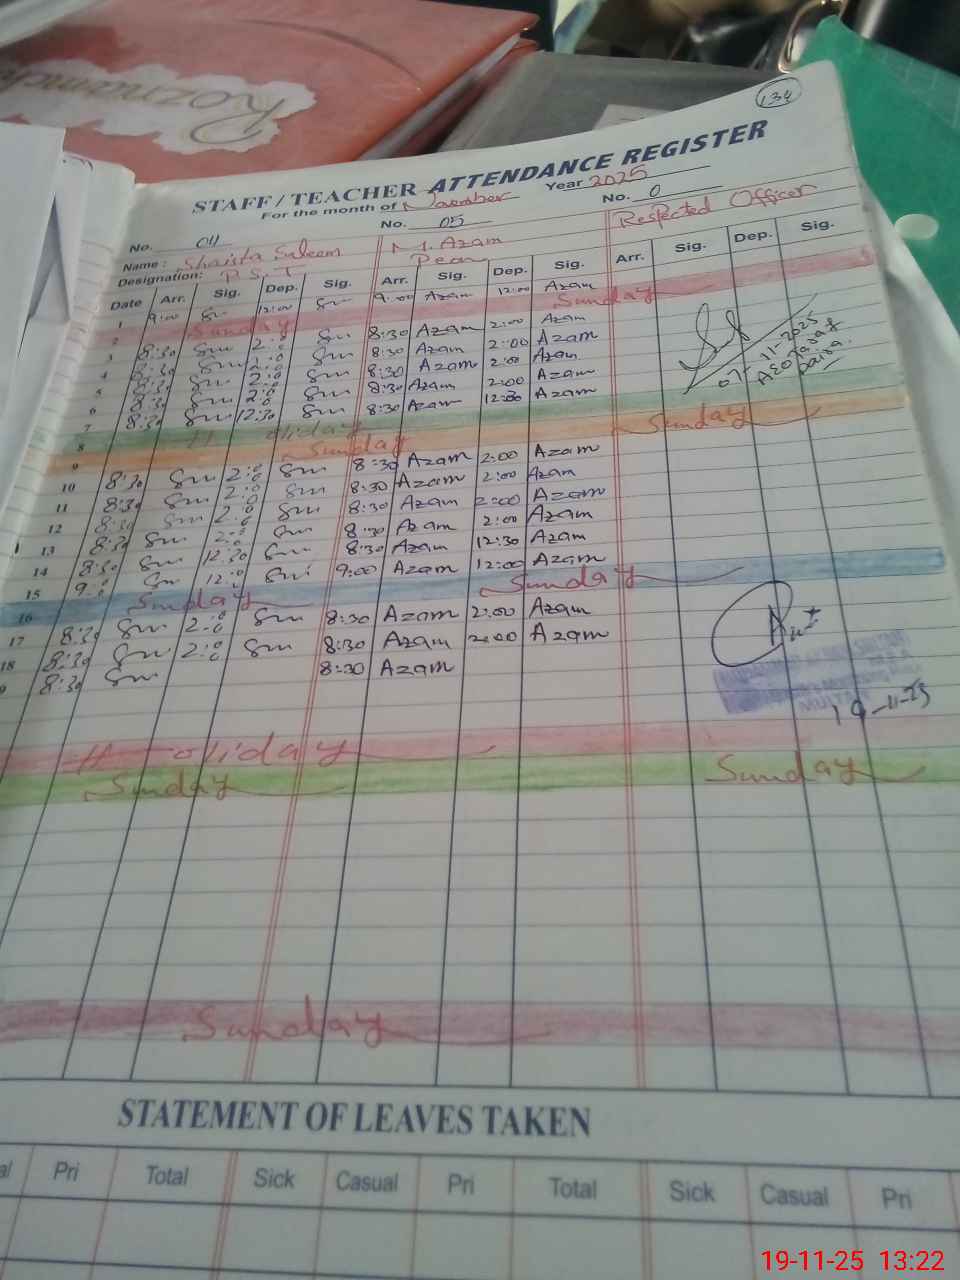 Roznamcha
134
STAFF / TEACHER ATTENDANCE REGISTER
For the month of November Year 2025
No. 04 No. 05 No. 0
Name: Shaista Saleem M. Azam Respected Officer
Designation: P.S.T Peon
Date Arr. Sig. Dep. Sig. Arr. Sig. Dep. Sig. Arr. Sig. Dep. Sig.
1 9:00 Sm 12:00 Sm 9:00 Azam 12:00 Azam
2 Sunday Sunday
3 8:30 Sm 2:0 Sm 8:30 Azam 2:00 Azam
4 8:30 Sm 2:0 Sm 8:30 Azam 2:00 Azam
5 8:30 Sm 2:0 Sm 8:30 Azam 2:00 Azam
6 8:30 Sm 2:0 Sm 8:30 Azam 2:00 Azam
7 8:30 Sm 12:30 Sm 8:30 Azam 12:30 Azam
07-11-2025
AEO
8 Holiday
9 Sunday Sunday
10 8:30 Sm 2:0 Sm 8:30 Azam 2:00 Azam
11 8:30 Sm 2:0 Sm 8:30 Azam 2:00 Azam
12 8:30 Sm 2:0 Sm 8:30 Azam 2:00 Azam
13 8:30 Sm 2:0 Sm 8:30 Azam 2:00 Azam
14 8:30 Sm 12:30 Sm 8:30 Azam 12:30 Azam
15 9:0 Sm 12:0 Sm 9:00 Azam 12:00 Azam
16 Sunday Sunday
17 8:30 Sm 2:0 Sm 8:30 Azam 2:00 Azam
18 8:30 Sm 2:0 Sm 8:30 Azam 2:00 Azam
9 8:30 Sm 8:30 Azam
19-11-25
Holiday
Sunday Sunday
Sunday
STATEMENT OF LEAVES TAKEN
al Pri Total Sick Casual Pri Total Sick Casual Pri
19-11-25 13:22